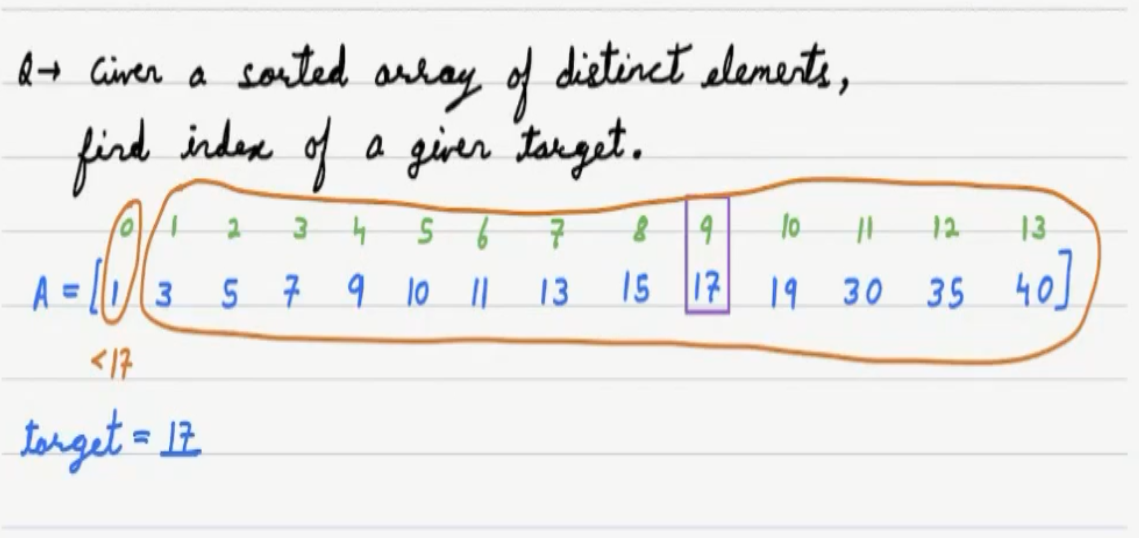 Q→ Given a sorted array of distinct elements,
find index of a given target.
0 1 2 3 4 5 6 7 8 9 10 11 12 13
A = [1 3 5 7 9 10 11 13 15 17 19 30 35 40]
<17
target = 17